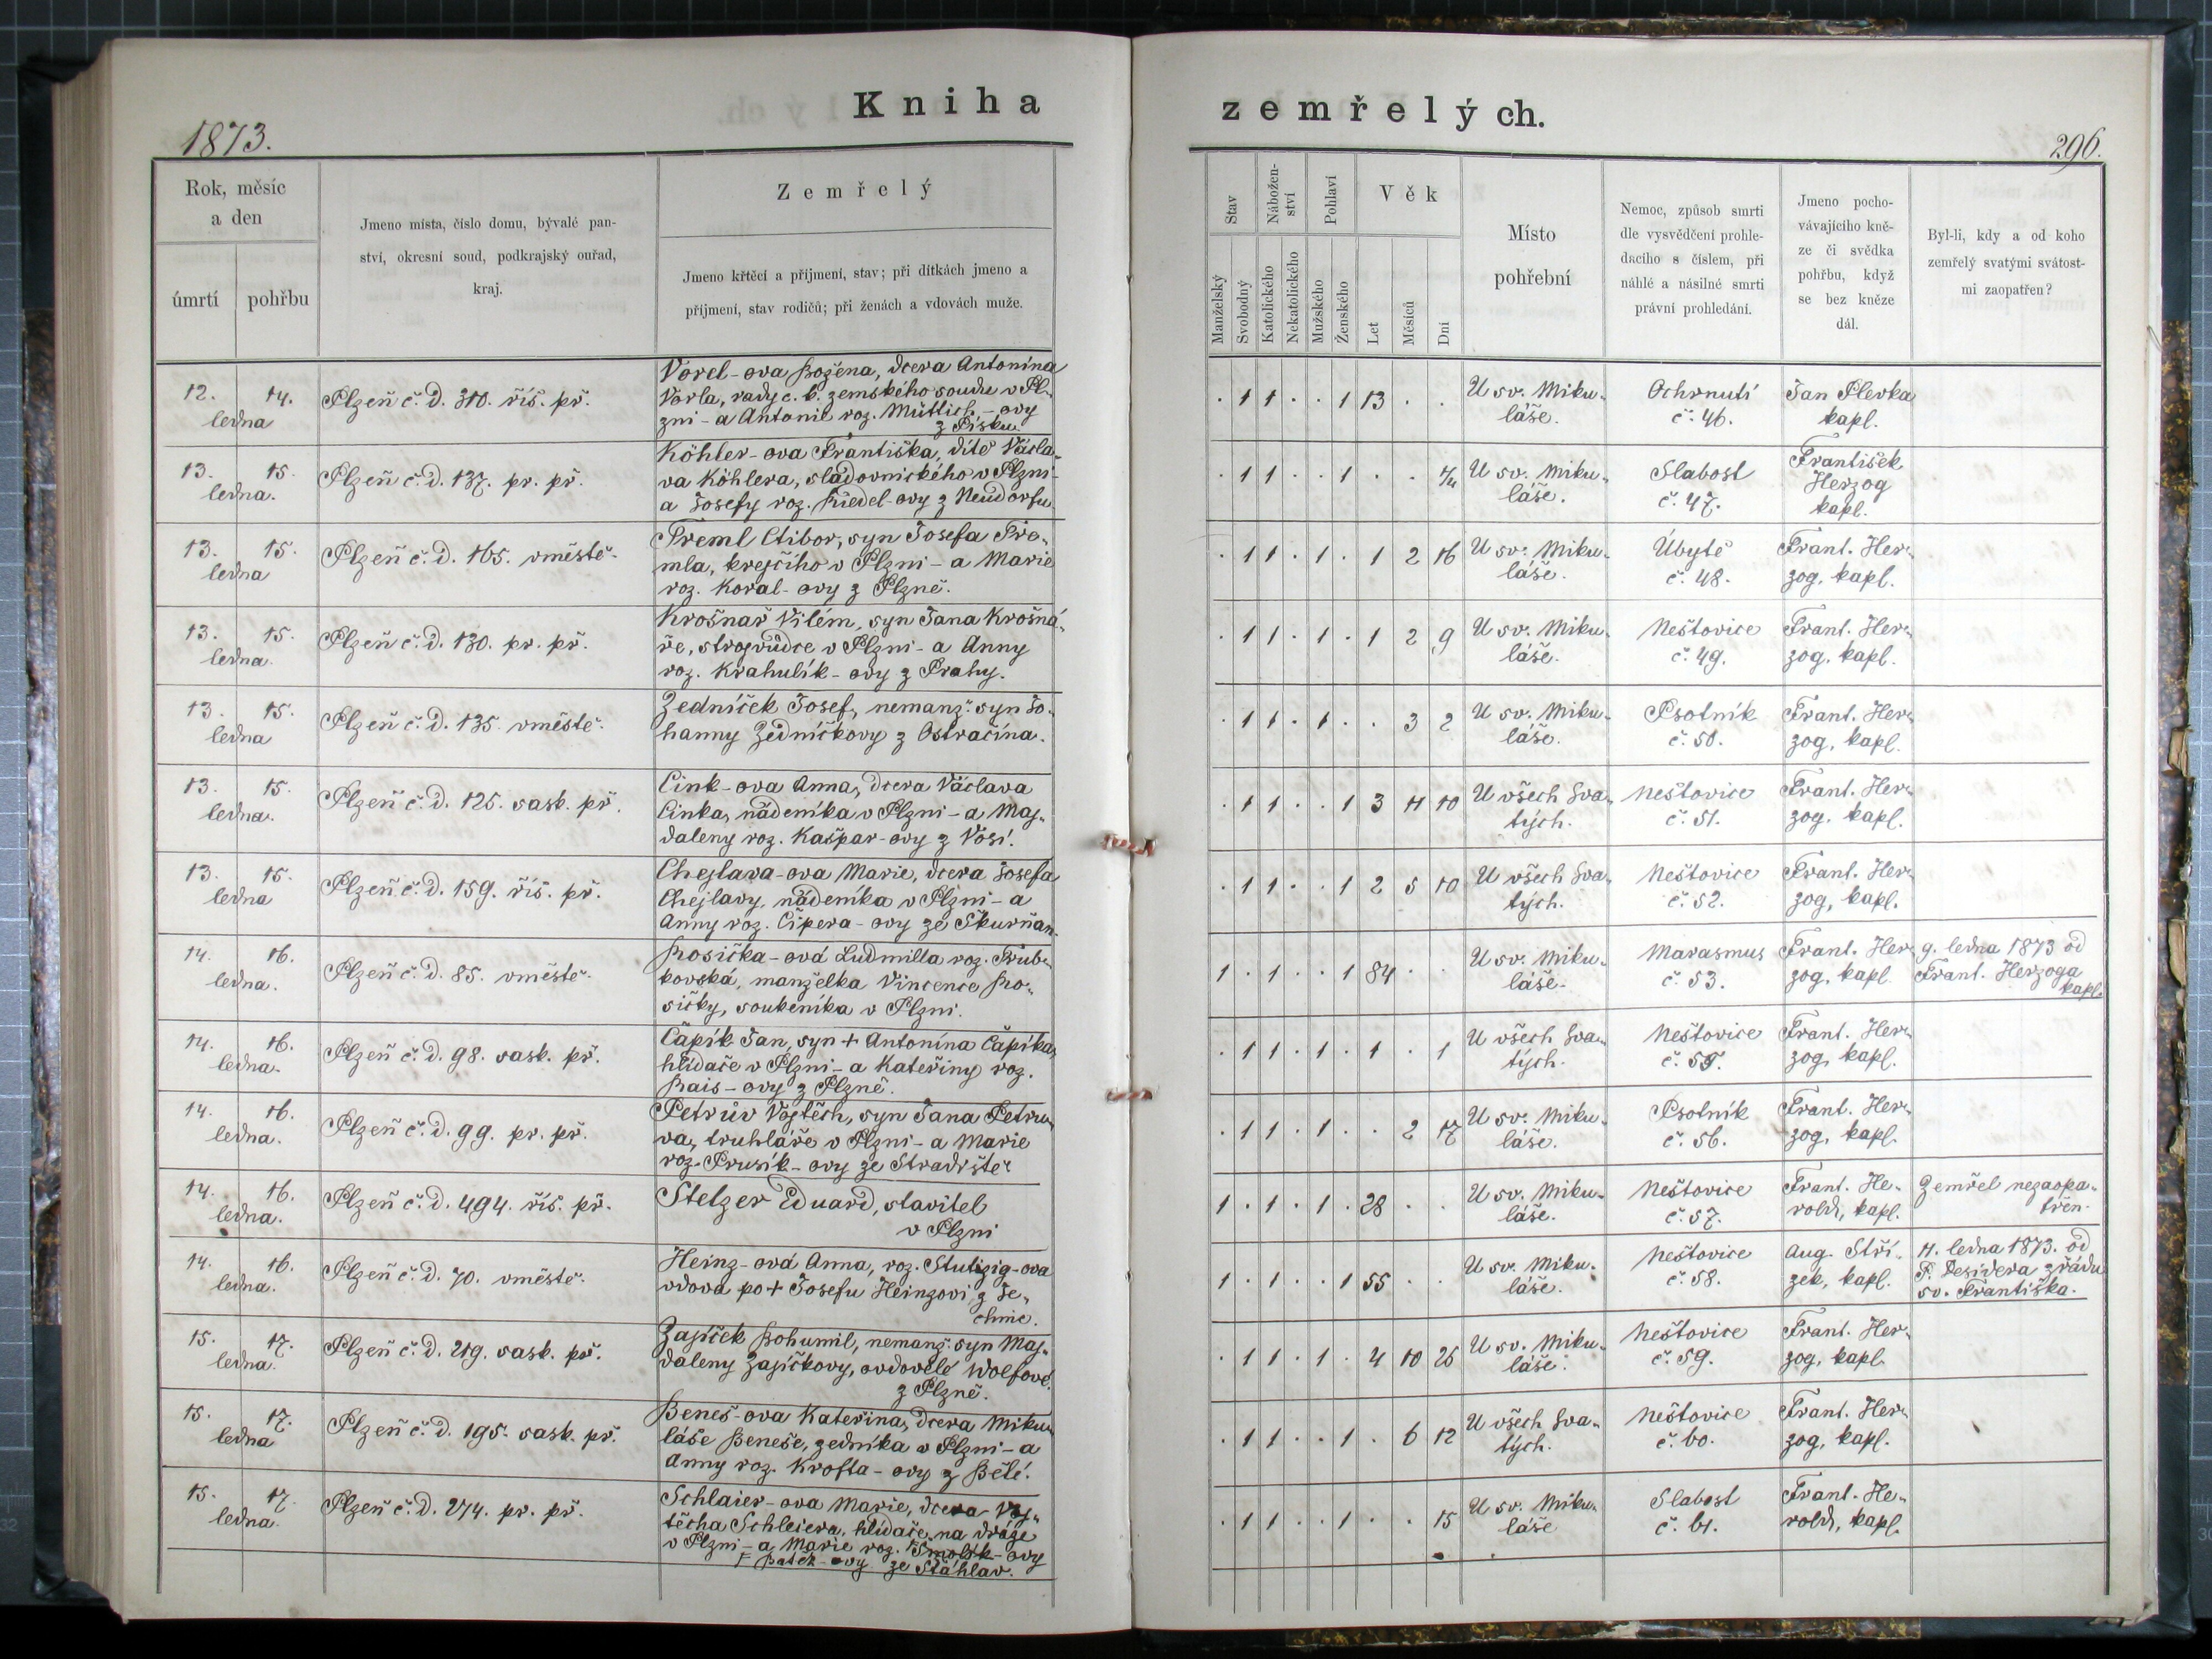 Kniha
zemřelých.
1873.
296.
Rok, měsíc
a den
úmrtí
pohřbu
Jmeno místa, číslo domu, bývalé pan-
ství, okresní soud, podkrajský ouřad,
kraj.
Zemřelý
Jmeno křtěcí a příjmení, stav; při dítkách jmeno a
příjmení, stav rodičů; při ženách a vdovách muže.
Stav
Nábožen-
ství
Pohlaví
Věk
Manželský
Svobodný
Katolického
Nekatolického
Mužského
Ženského
Let
Měsíců
Dní
Místo
pohřební
Nemoc, způsob smrti
dle vysvědčení prohle-
dacího s číslem, při
náhlé a násilné smrti
právní prohledání.
Jmeno pocho-
vávajícího kně-
ze či svědka
pohřbu, když
se bez kněze
dál.
Byl-li, kdy a od koho
zemřelý svatými svátost-
mi zaopatřen?
12. 14.
ledna
Plzeň č. d. 310. říš. př.
Vorel-ova Božena, dcera Antonína
Vorla, rady c. k. zemského soudu v Pl-
zni - a Antonie roz. Müttich - ovy
z Písku.
. 1 1 . . 1 13 . .
U sv. Miku-
láše.
Ochrnutí
č. 46.
Jan Plevka
kapl.
13. 15.
ledna.
Plzeň č. d. 137. pr. př.
Köhler-ova Františka, dítě Václa-
va Köhlera, sládovnického v Plzni -
a Josefy roz. Riedel-ovy z Neudorfu
. 1 1 . . 1 . .
U sv. Miku-
láše.
Slabost
č. 47.
František
Herzog
kapl.
13. 15.
ledna
Plzeň č. d. 165. vměstě.
Treml Ctibor, syn Josefa Tre-
mla, krejčího v Plzni - a Marie
roz. Koral-ovy z Plzně.
. 1 1 . 1 . 1 2 16
U sv. Miku-
láše.
Úbytě
č. 48.
Frant. Her-
zog, kapl.
13. 15.
ledna.
Plzeň č. d. 130. pr. př.
Krošnař Vilém, syn Jana Krošná-
ře, strojvůdce v Plzni - a Anny
roz. Krahulík-ovy z Prahy.
. 1 1 . 1 . 1 2 9
U sv. Miku-
láše.
Neštovice
č. 49.
Frant. Her-
zog, kapl.
13. 15.
ledna
Plzeň č. d. 135. vměstě.
Zedníček Josef, nemanž. syn Jo-
hanny Zedníčkovy z Ostračína.
. 1 1 . 1 . . 3 2
U sv. Miku-
láše.
Psotník
č. 50.
Frant. Her-
zog, kapl.
13. 15.
ledna.
Plzeň č. d. 125. sask. př.
Cink-ova Anna, dcera Václava
Cinka, nádeníka v Plzni - a Maj-
daleny roz. Kašpar-ovy z Vosí.
. 1 1 . . 1 3 11 10
U všech Sva-
tých.
Neštovice
č. 51.
Frant. Her-
zog, kapl.
13. 15.
ledna
Plzeň č. d. 159. říš. př.
Chejlava-ova Marie, dcera Josefa
Chejlavy, nádeníka v Plzni - a
Anny roz. Čipera-ovy ze Skurňan.
. 1 1 . . 1 2 5 10
U všech Sva-
tých.
Neštovice
č. 52.
Frant. Her-
zog, kapl.
14. 16.
ledna.
Plzeň č. d. 85. vměstě.
Rosička-ová Ludmilla roz. Trub-
kovská, manželka Vincence Ro-
sičky, soukeníka v Plzni.
1 . 1 . . 1 84 . .
U sv. Miku-
láše.
Marasmus
č. 53.
Frant. Her-
zog, kapl.
9. ledna 1873 od
Frant. Herzoga
kapl.
14. 16.
ledna.
Plzeň č. d. 98. sask. př.
Čapík Jan, syn + Antonína Čapíka,
hlídače v Plzni - a Kateřiny roz.
Rais-ovy z Plzně.
. 1 1 . 1 . 1 . 1
U všech Sva-
tých.
Neštovice
č. 55.
Frant. Her-
zog, kapl.
14. 16.
ledna.
Plzeň č. d. 99. pr. př.
Petrův Vojtěch, syn Jana Petru-
va, truhláře v Plzni - a Marie
roz. Prusík-ovy ze Stradiště
. 1 1 . 1 . . 2 17
U sv. Miku-
láše.
Psotník
č. 56.
Frant. Her-
zog, kapl.
14. 16.
ledna.
Plzeň č. d. 494. říš. př.
Stelzer Eduard, stavitel
v Plzni
1 . 1 . 1 . 28 . .
U sv. Miku-
láše.
Neštovice
č. 57.
Frant. He-
rold, kapl.
Zemřel nezaopa-
třen.
14. 16.
ledna.
Plzeň č. d. 70. vměstě.
Heinz-ová Anna, roz. Stutzig-ova
vdova po + Josefu Heinzovi z Te-
chnic.
1 . 1 . . 1 55 . .
U sv. Miku-
láše.
Neštovice
č. 58.
Aug. Stří-
zek, kapl.
11. ledna 1873. od
P. Desidera z řádu
sv. Františka.
15. 17.
ledna.
Plzeň č. d. 219. sask. př.
Zajíček Bohumil, nemanž. syn Maj-
daleny Zajíčkovy, ovdovělé Wolfové.
z Plzně.
. 1 1 . 1 . 4 10 25
U sv. Miku-
láše.
Neštovice
č. 59.
Frant. Her-
zog, kapl.
15. 17.
ledna
Plzeň č. d. 195. sask. př.
Beneš-ova Kateřina, dcera Miku-
láše Beneše, zedníka v Plzni - a
Anny roz. Krofta-ovy z Bělé.
. 1 1 . . 1 . 6 12
U všech Sva-
tých.
Neštovice
č. 60.
Frant. Her-
zog, kapl.
15. 17.
ledna.
Plzeň č. d. 274. pr. př.
Schlaier-ova Marie, dcera Voj-
těcha Schleiera, hlídače na dráze
v Plzni - a Marie roz. Smolík-ovy
F Bátěk-ovy ze Šťáhlav.
. 1 1 . . 1 . . 15
U sv. Miku-
láše
Slabost
č. 61.
Frant. He-
rold, kapl.